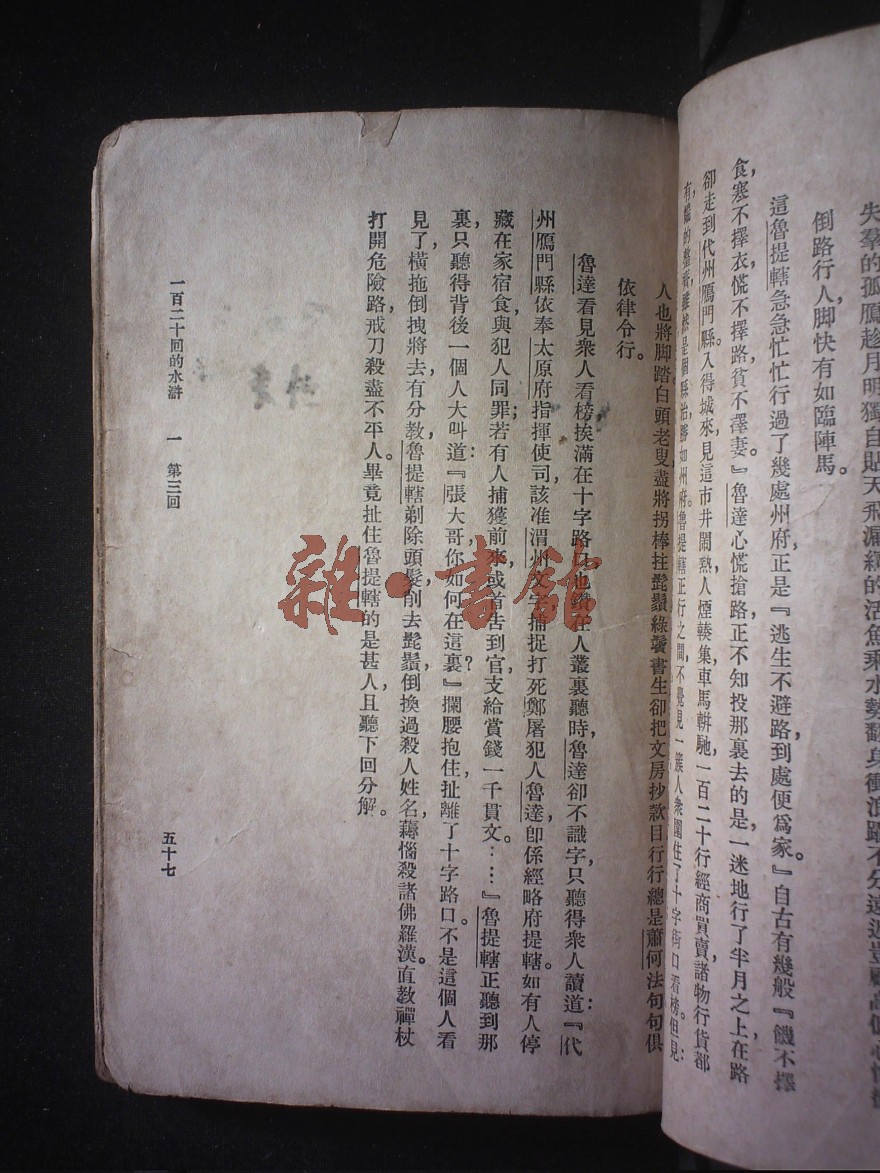 失羣的孤鴈趁月明獨自貼天飛漏網的活魚乘水勢翻身衝浪躍不分遠近豈
倒路行人脚快有如臨陣馬。
這魯提轄急急忙忙行過了幾處州府正是『逃生不避路，到處便爲家。』自古有幾般『饑不擇
食，寒不擇衣，慌不擇路，貧不擇妻。』魯達心慌搶路，正不知投那裏去的是，一迷地行了半月之上，在路
卻走到代州鴈門縣。入得城來，見這市井鬧熱，人煙輳集，車馬軿馳，一百二十行經商買賣諸物行貨都
有，端的整齊，雖然是個縣治，勝如州府。魯提轄正行之間，不覺見一簇人衆，圍住了十字街口看榜。但見：
人也將脚踏白頭老叟盡將拐棒拄髭鬚綠鬢書生卻把文房抄款目行行總是蕭何法句句俱
依律令行。
魯達看見衆人看榜，挨滿在十字路口，也鑽在人叢裏聽時，魯達卻不識字，只聽得衆人讀道：『代
州鴈門縣依奉太原府指揮使司，該准渭州文字，捕捉打死鄭屠犯人魯達，卽係經略府提轄。如有人停
藏在家宿食，與犯人同罪；若有人捕獲前來，或首告到官，支給賞錢一千貫文。……』魯提轄正聽到那
裏，只聽得背後一個人大叫道：『張大哥，你如何在這裏？』攔腰抱住，扯離了十字路口。不是這個人看
見了，橫拖倒拽將去，有分教，魯提轄剃除頭髮，削去髭鬚，倒換過殺人姓名，薅惱殺諸佛羅漢。直教禪杖
打開危險路，戒刀殺盡不平人。畢竟扯住魯提轄的是甚人，且聽下回分解。
一百二十回的水滸 一 第三回
五十七
雜·書館